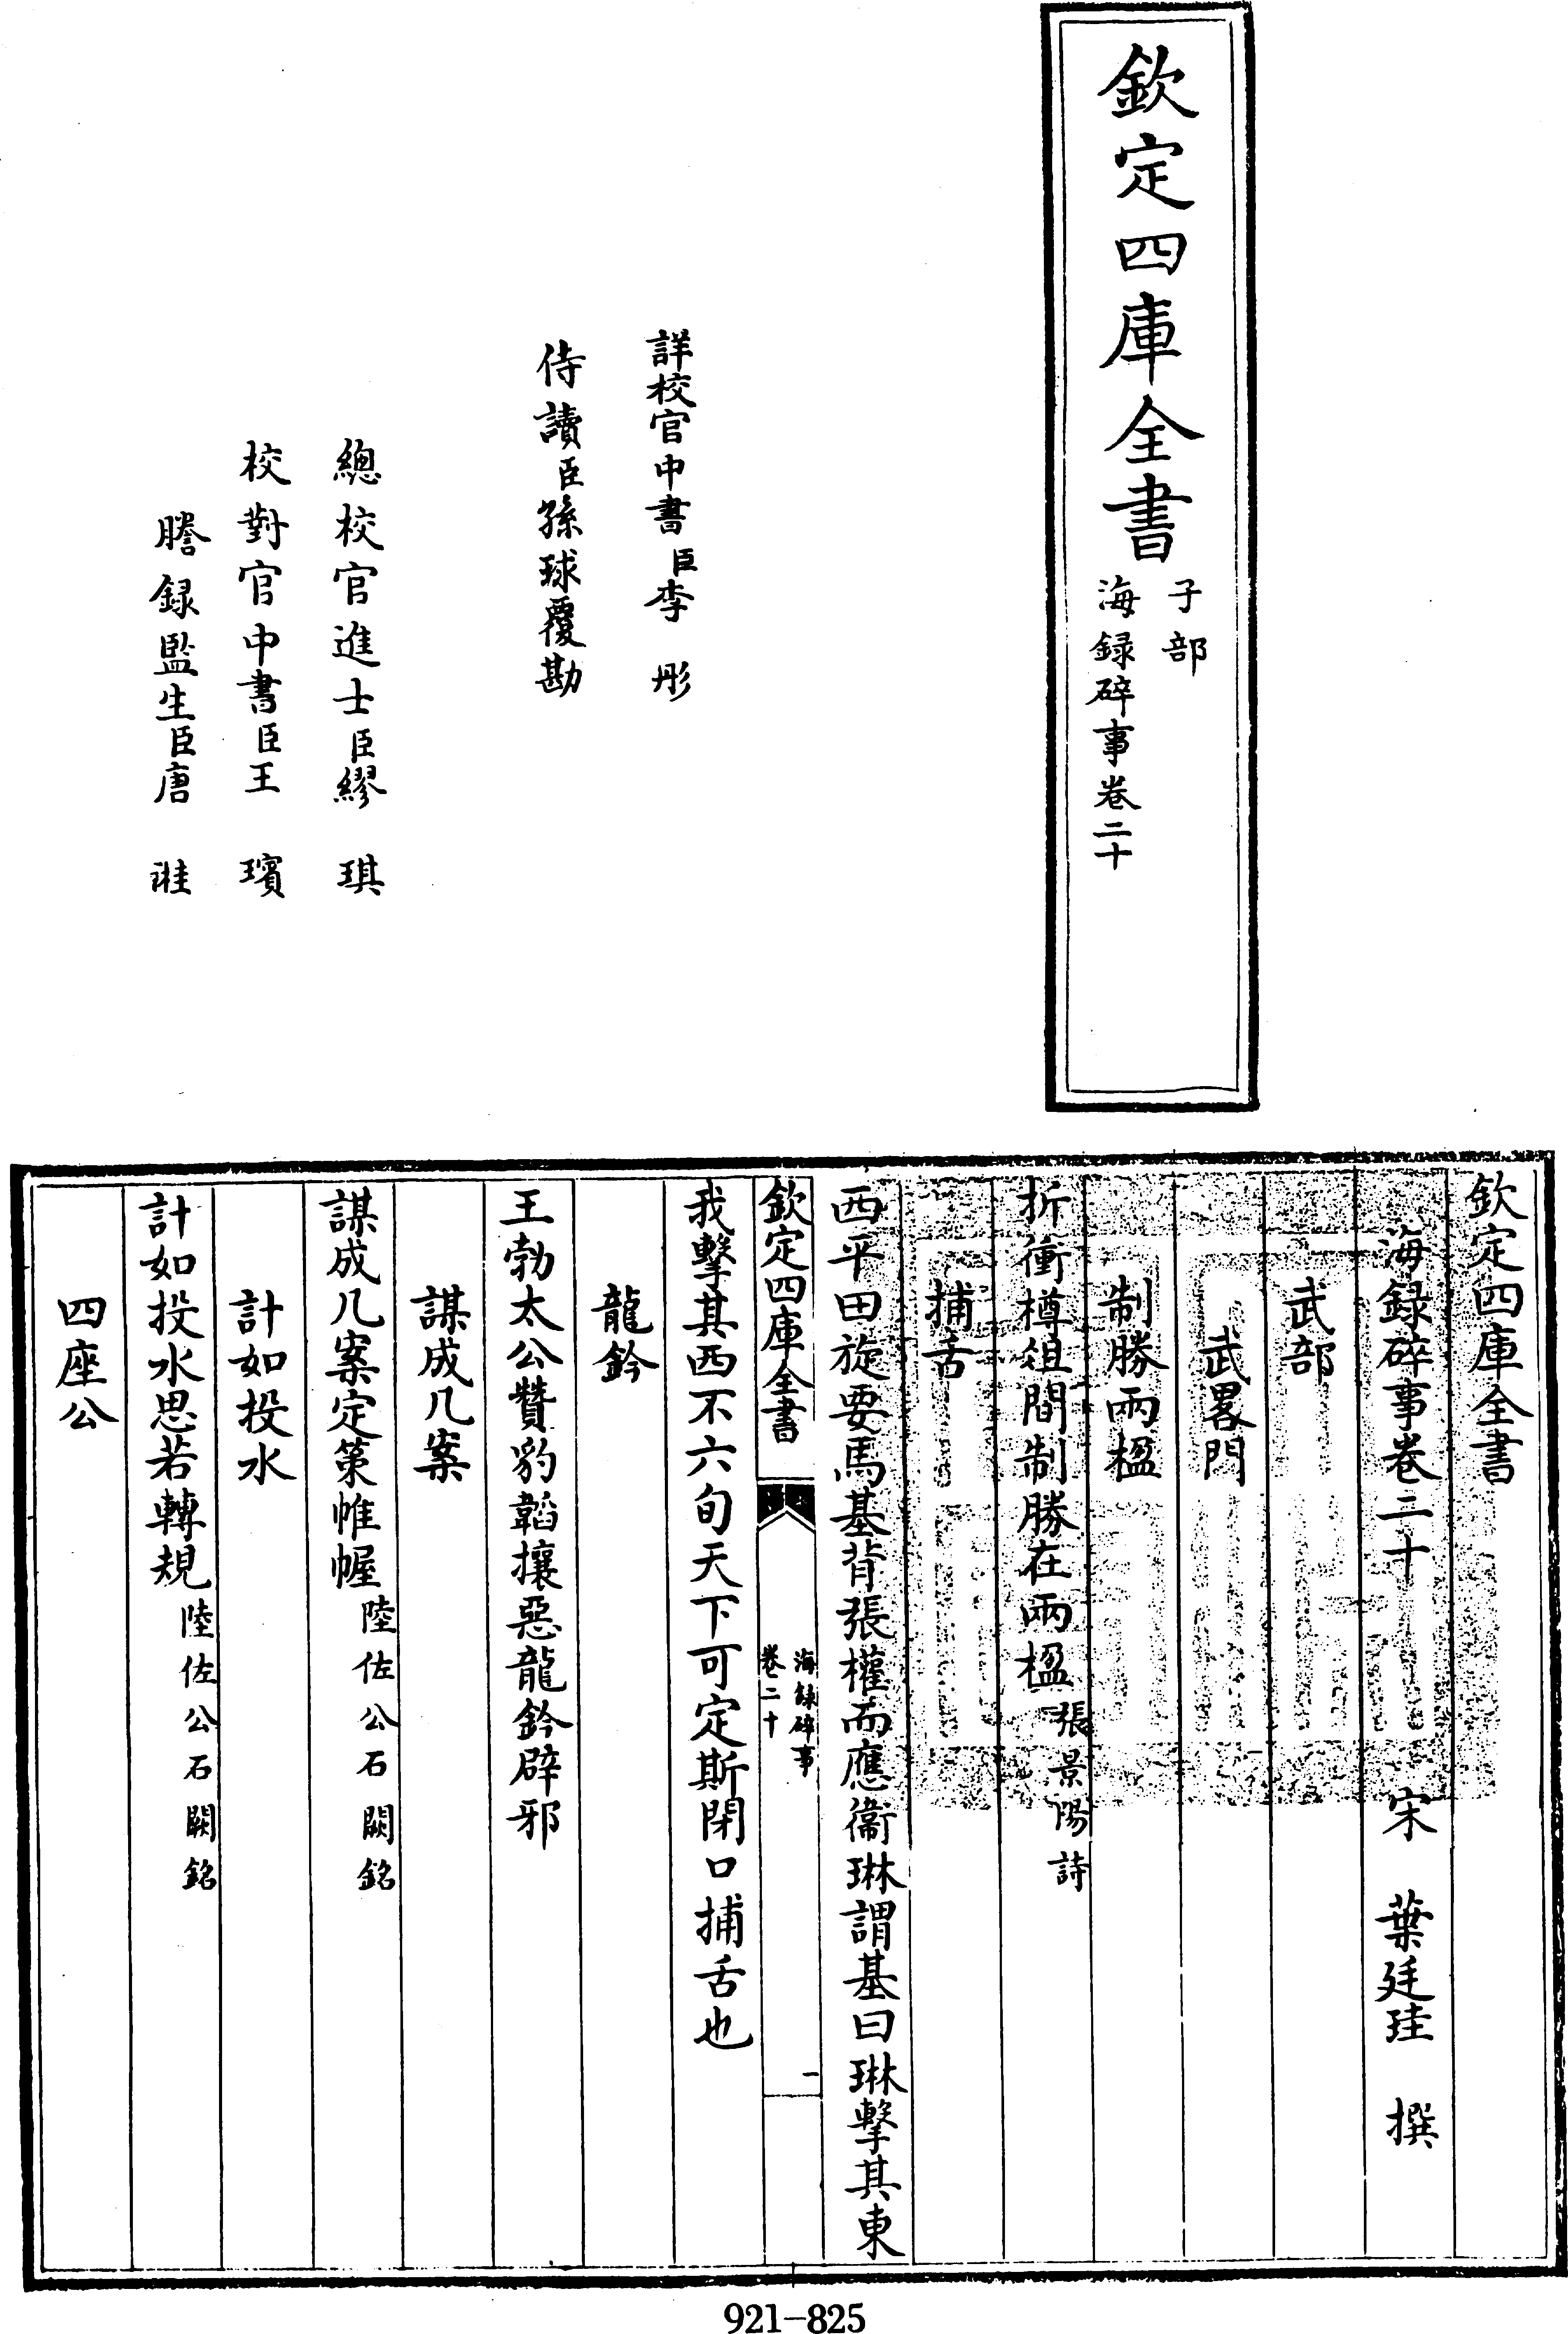 欽定四庫全書
子部
海録碎事卷二十
詳校官中書臣李彤
侍讀臣孫球覆勘
總校官進士臣繆琪
校對官中書臣王璸
謄録監生臣唐
欽定四庫全書
海録碎事卷二十 宋 葉廷珪 撰
武部
武畧門
制勝兩楹
折衝樽俎間制勝在兩楹張景陽詩
捕舌
西平田旋要馬基背張權而應衞琳謂基曰琳擊其東
欽定四庫全書
海録碎事
卷二十
一
我擊其西不六旬天下可定斯閉口捕舌也
龍鈐
王勃太公贊豹韜攘惡龍鈐辟邪
謀成几案
謀成几案定策帷幄陸佐公石闕銘
計如投水
計如投水思若轉規陸佐公石闕銘
四座公
921-825